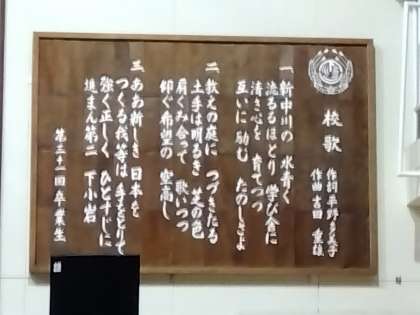 校歌
作詞 平野多美子
作曲 吉田 重雄
一、新中川の 水青く
流るるほとり 学び舎に
清き心を 育てつつ
互いに励む たのしさよ
二、教えの庭に つづきたる
土手は明るき 芝の色
肩くみ合って 歌いつつ
仰ぐ希望の 雲高し
三、ああ新しき 日本を
つくる我等は 手をとりて
強く正しく ひとすじに
進まん第二 下小岩
第三十一回卒業生